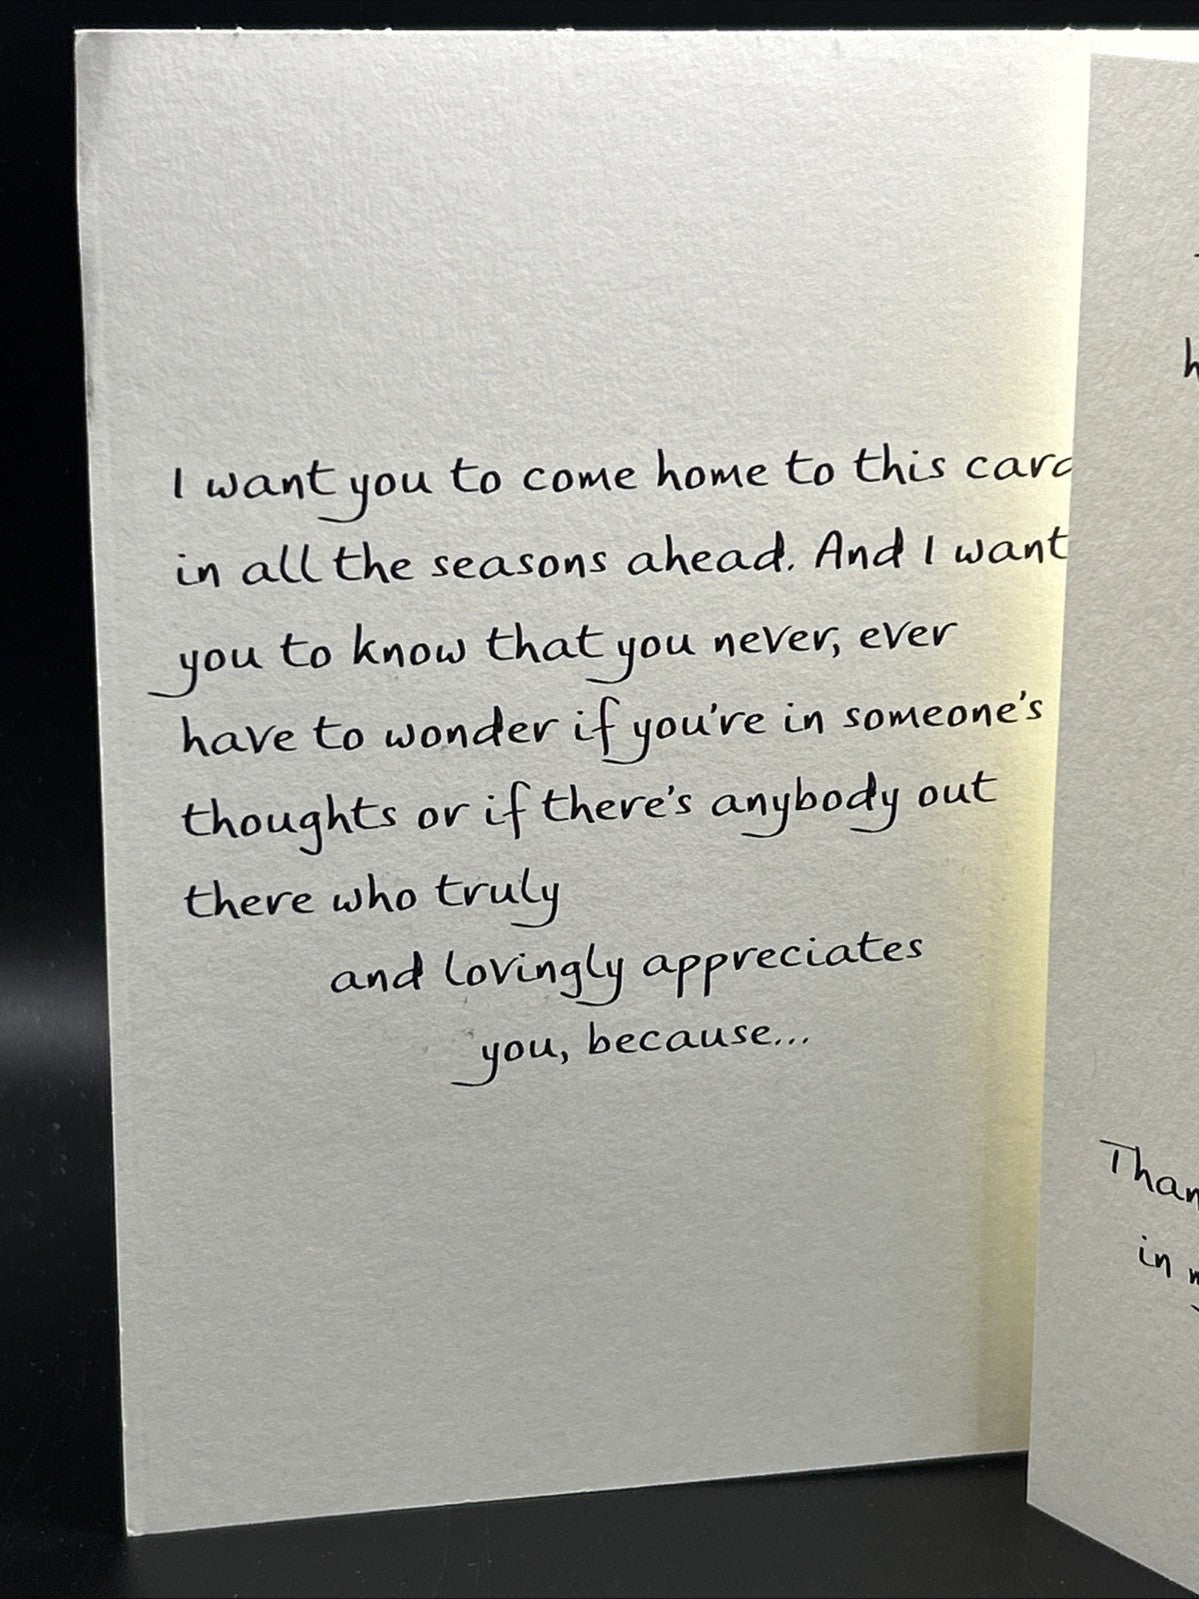 I want you to come home to this card
in all the seasons ahead. And I want
you to know that you never, ever
have to wonder if you're in someone's
thoughts or if there's anybody out
there who truly
and lovingly appreciates
you, because...
in